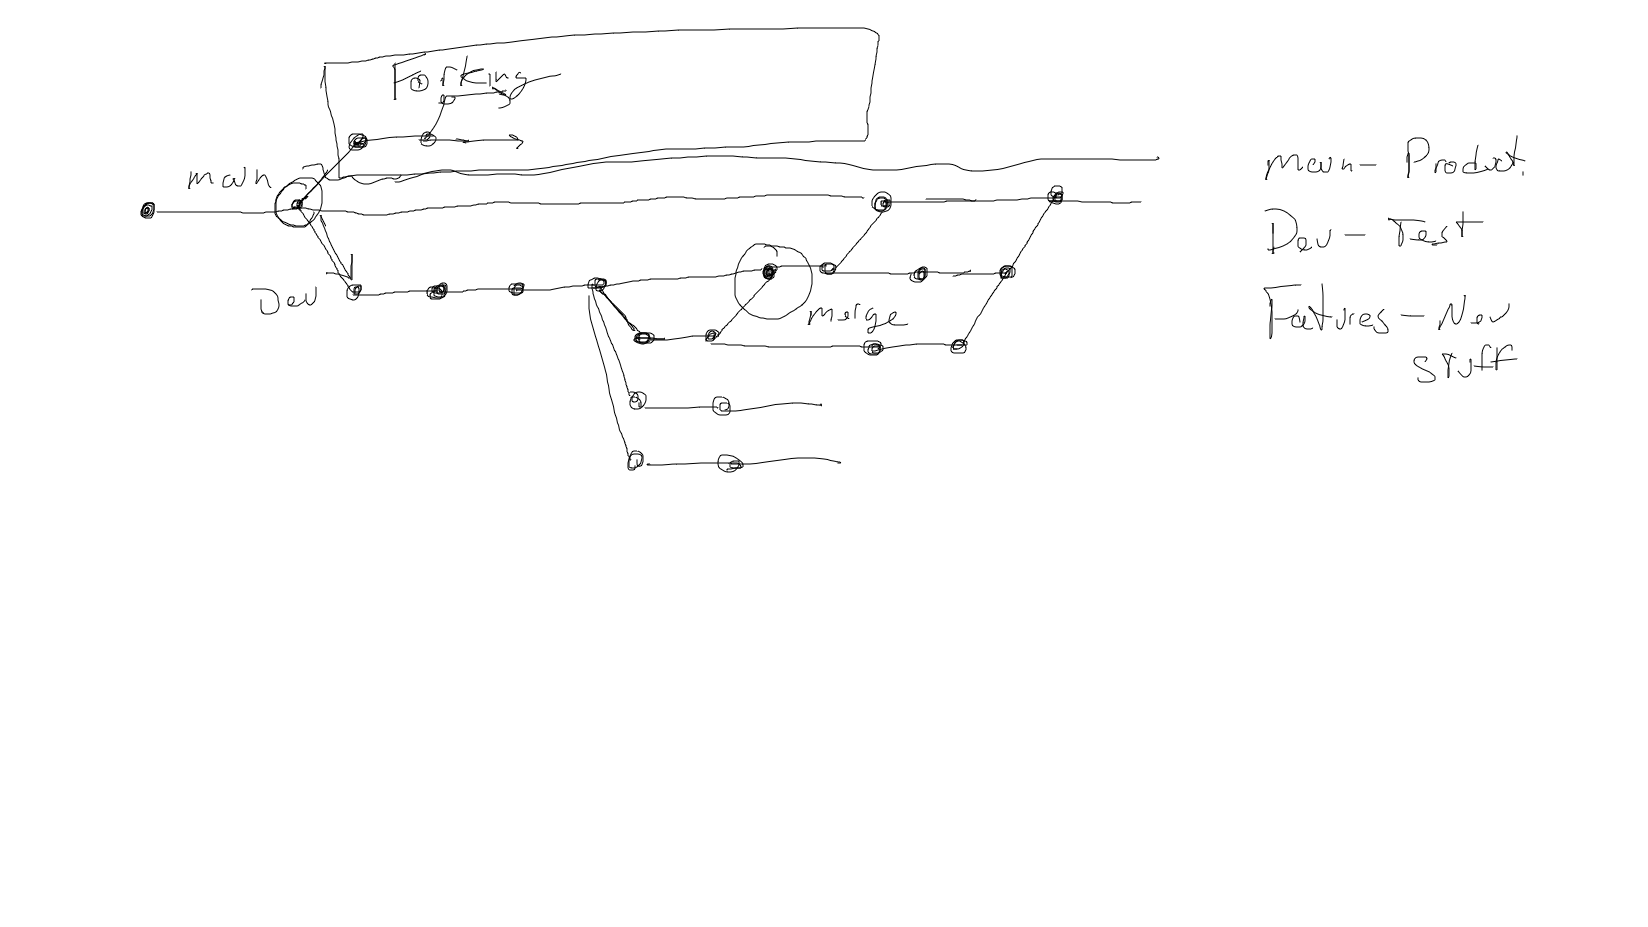 Forking
main
Dev
merge
main - Product.
Dev - Test
Fatures - New
stuff